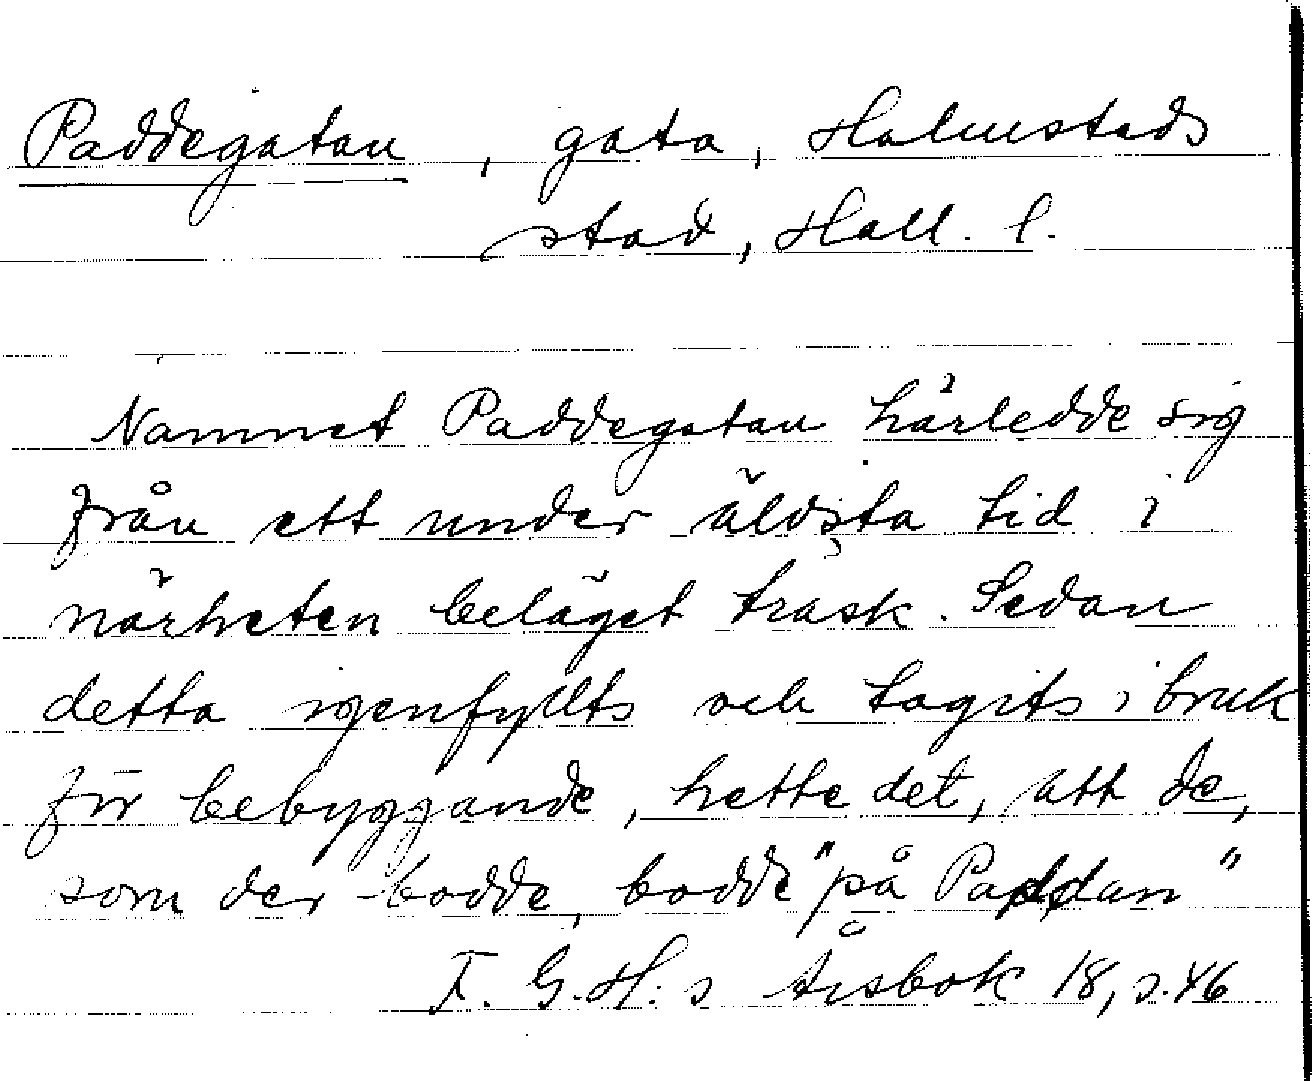 Paddegatan, gata, Halmstads
stad, Hall. l.
Namnet Paddegatan härledde sig
från ett under äldsta tid i
närheten beläget träsk. Sedan
detta igenfyllts och tagits i bruk
för bebyggande, hette det, att de,
som der bodde, bodde "på Paddan"
F. G. H:s Årsbok 18, s. 46